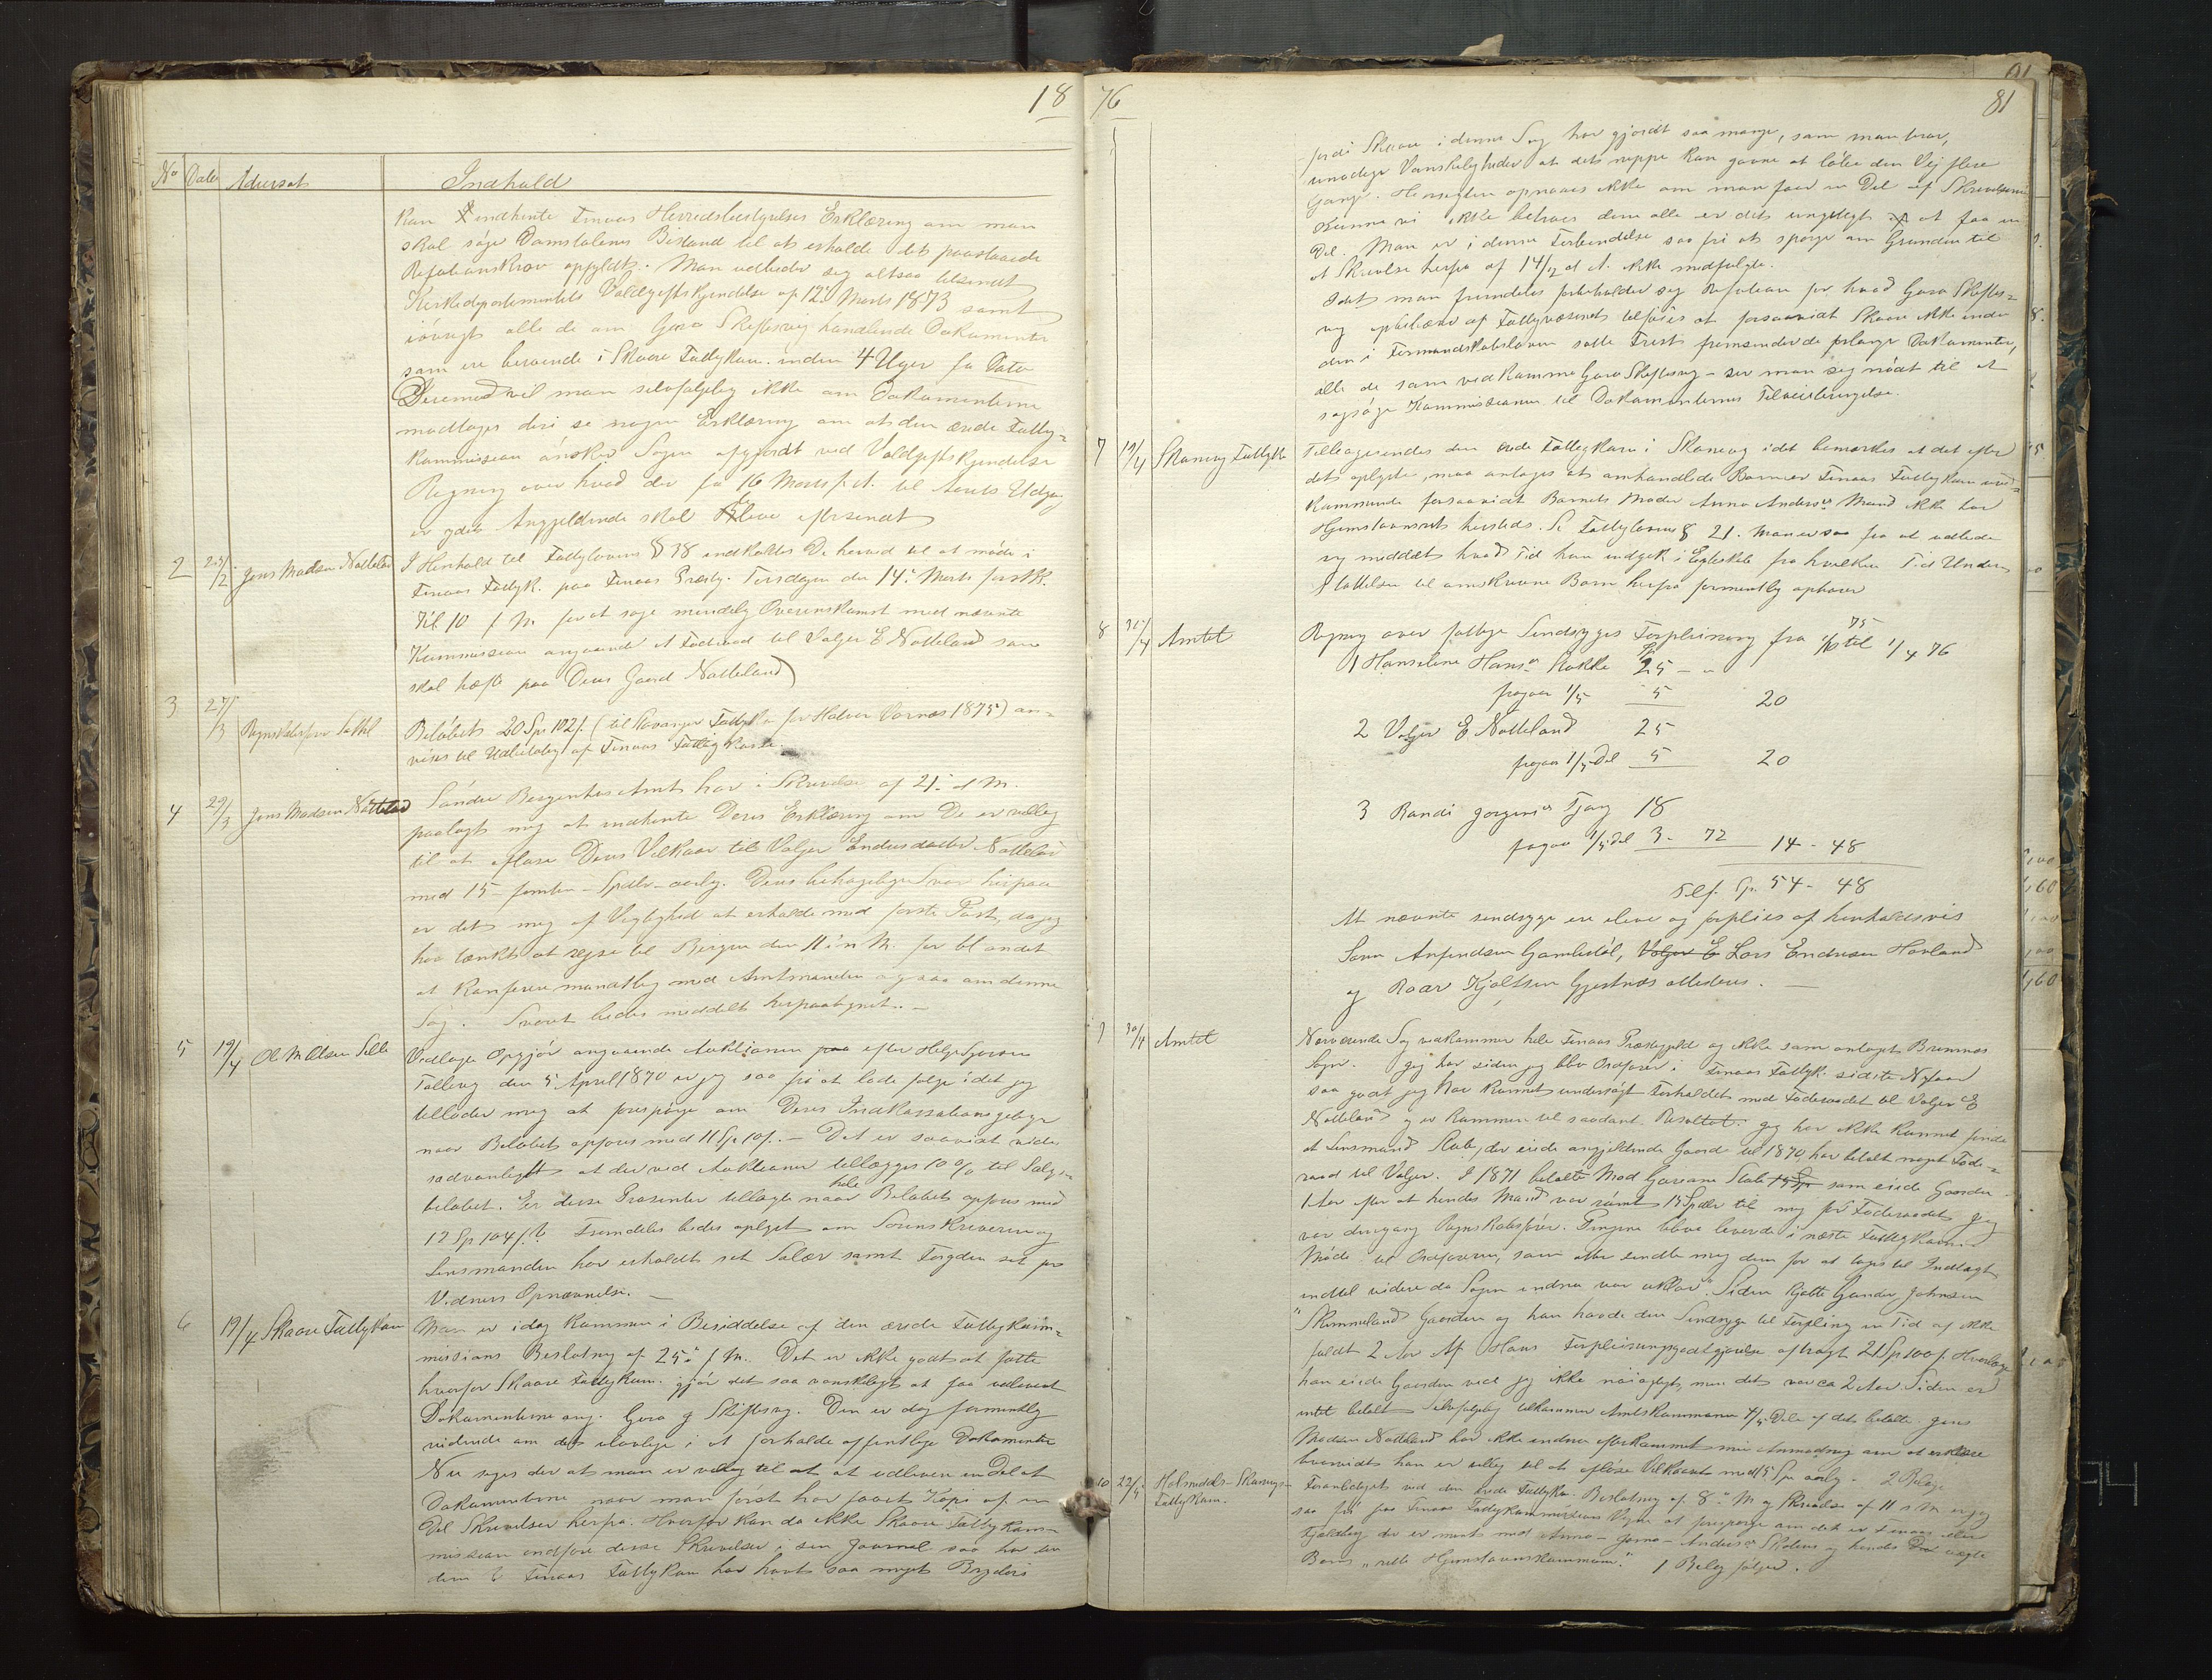 18
No Dato Adressat Indhold
kan indhente Finaas Herredsbestyrelses Erklæring om man
skal søge Domstolenes Bistand til at erholde det paastaaede
Refusionskrav opfyldt. Man udbeder sig altsaa tilsendt
Kirkedepartementets Voldgiftskjendelse af 12te Marts 1873 samt
iøvrigt alle de om Gøra Skeftesvig handlende Dokumenter
som ere beroende i Skaare Fattigkom. inden 4 Uger fra Dato
Derimod vil man selvfølgelig ikke om Dokumenterne
modtages deri se nogen Erklæring om at den ærede Fattig-
kommission ønsker Sagen afgjordt ved Voldgiftskjendelse
Regning over hvad der fra 16 Marts f. A. til Aarets Udgang
er ydet Angjeldende skal blive eftersendt
2 23/2 Jens Madsen Natteland I Henhold til Fattiglovens § 38 indkaldes De herved til at møde i
Finaas Fattigk. paa Finaas Præstg. Tirsdagen den 14de Marts førstk.
Kl. 10 f M. for at søge mindelig Overenskomst med nævnte
Kommission angaaende et Føderaad til Valger E Natteland som
skal hæfte paa Deres Gaard Natteland)
3 27/3 Regnskabsfører Sæthl Beløbet 20 Sp 102 s. (til Kvasanger Fattigk. for Halvor Varnæs 1875) an-
vises til Udbetaling af Finaas Fattigkasse
4 29/3 Jens Madsen Natteland Søndre Bergenhus Amt har i Skrivelse af 21. d M.
paalagt mig at indhente Deres Erklæring om De er villig
til at afløse Deres Vilkaar til Valger Endresdatter Natteland
med 15 - femten - Spdlr - aarlig. Deres behagelige Svar herpaa
er det mig af Vigtighed at erholde med første Post, da jeg
har tænkt at rejse til Bergen den 11 i n M. for bl andet
at konferere mundtlig med Amtmanden ogsaa om denne
Sag. Svaret bedes meddelt herpaategnet. -
5 19/4 Ole M Olsen Selle Vedlagte Opgjør angaaende Auktionen efter Helge
Tollevig den 5 April 1870 er jeg saa fri at lade følge idet jeg
tillader mig at forespørge om Deres Indkassationsgebyr
naar Beløbet opføres med 11 Sp 10 s. - Det er saavidt vides
sædvanligt at der ved Auktioner tillægges 10 % til Salgs-
beløbet. Er disse Prosenter tillagte naar hele Beløbet opføres med
12 Sp 104 s.? Fremdeles bedes oplyst om Sorenskriveren og
Lensmanden har erholdt sit Salær samt Fogden sit for
Vidners Opnævnelse. -
6 19/4 Skaare Fattigkom Man er idag kommen i Besiddelse af den ærede Fattigkom-
missions Beslutning af 25de f M. Det er ikke godt at fatte
hvorfor Skaare Fattigkom. gjør det saa vanskeligt at faa udleveret
Dokumenterne ang. Gøra Skeftesvig. Den er dog formentlig
vidende om det ulovlige i at forholde offentlige Dokumenter
Nu siges der at man er villig til at at udlevere en Del af
Dokumenterne naar man først har faaet Kopi af en
Del Skrivelser herfra. Hvorfor kan da ikke Skaare Fattigkom-
mission indføre disse Skrivelser i sin Journal saa har den
dem? Finaas Fattigkom har havt saa meget Bryderi
76
81
fordi Skaare i denne Sag har gjordt saa mange, som man tror,
unødige Vanskeligheder at det neppe kan gavne at løbe den Vej flere
Gange. Hensigten opnaaes ikke om man faar en Del af Skrivelserne
kunne vi ikke behøves dem alle er det unyttigt at faa en
Del. Man er i denne Forbindelse saa fri at spørge om Grunden til
at Skrivelse herfra af 14/12 d A. ikke medfulgte.
Idet man fremdeles forbeholder sig Refusion for hvad Gøra Skeftes-
vig oppebærer af Fattigvæsenet tilføies at forsaavidt Skaare ikke inden
den i Formandskabsloven satte Frist fremsender de forlangte Dokumenter,
alle de som vedkomme Gøra Skeftesvig - ser man sig nødt til at
sagsøge Kommissionen til Dokumenternes Tilveiebringelse.
7 19/4 Skonevig Fattigk. Tilbagesendes den ærede Fattigkom i Skonevig idet bemærkes at det efter
det oplyste, maa antages at omhandlede Barn er Finaas Fattigkom ved-
kommende forsaavidt Barnets Moder Anna Andersdr Mand ikke har
Hjemstavnsret hersteds. Se Fattiglovens § 21. Man er saa fri at udbede
sig meddelt hvad Tid hun indgik i Egteskab fra hvilken Tid Under-
støttelsen til omskrevne Barn herfra formentlig ophører
8 30/4 Amtet Regning over fattige Sindsyges Forpleining fra 1/10 75 til 1/4 76
1 Hanseline Hansdr Rokke Sp 25 - "
fragaar 1/5 5 20
2 Valger E Natteland 25
fragaar 1/5 Del 5 20
3 Randi Jørgensdr Tjong 18
fragaar 1/5 Del 3 - 72 14 - 48
Tils. Sp. 54 - 48
At nævnte sindsyge ere i live og forpleies af henholdsvis
Søren Anfindsen Gambedal, Valger E Lars Endresen Hovland
og Roar Kjøltsen Gjertnæs attesteres. -
9 30/4 Amtet Nærværende Sag vedkommer hele Finaas Præstegjeld og ikke som antaget Bremnæs
Sogn. Jeg har siden jeg blev Ordfører i Finaas Fattigk. sidste Nytaar
saa godt jeg har kunnet undersøgt Forholdet med Føderaadet til Valger E
Natteland og er kommen til saadant Resultat: jeg har ikke kunnet finde
at Lensmand Stabe, der eiede angjeldende Gaard til 1870, har betalt noget Føde-
raad til Valger. I 1871 betalte Mad Gjøriane Stabe 15 Sp som eiede Gaarden
1 Aar efter at hendes Mand var rømt 15 Spdlr til mig for Føderaadet. Jeg
var dengang Regnskabsfører. Pengene bleve leverede i næste Fattigkom-
Møde til Ordføreren, som atter sendte mig dem for at tages til Indtægt
indtil videre da Sagen endnu var uklar". Siden kjøbte Gunder Johnsen
Skimmeland Gaarden og han havde den Sindsyge til Forpleining en Tid af ikke
fuldt 2 Aar. Af Hans Forpleiningsgodtgjørelse aftragt 21 Sp 100 s. Hvorlænge
han eiede Gaarden ved jeg ikke nøiagtigt, men det var ca 2 Aar. Siden er
intet betalt. Selvfølgelig tilkommer Amtskommunen 4/5 Dele af det betalte. Jens
Madsen Natteland har ikke endnu efterkommet min Anmodning om at erklære
hvorvidt han er villig til at afløse Vilkaaret med 15 Spr aarlig. - 2 Bilage
10 22/5 Holmedals - Skonevigs - Fattigkom. Foranlediget ved den ærede Fattigk. Beslutning af 8de M og Skrivelse af 11 s M er jeg
saa fri paa Finaas Fattigkommissions Vegne at forespørge om det er Finaas eller
Fjelberg der er ment med Anna - Jorna - Andersdr Skolens og hendes uægte
Barns "rette Hjemstavnskommune". 1 Bilag følger.